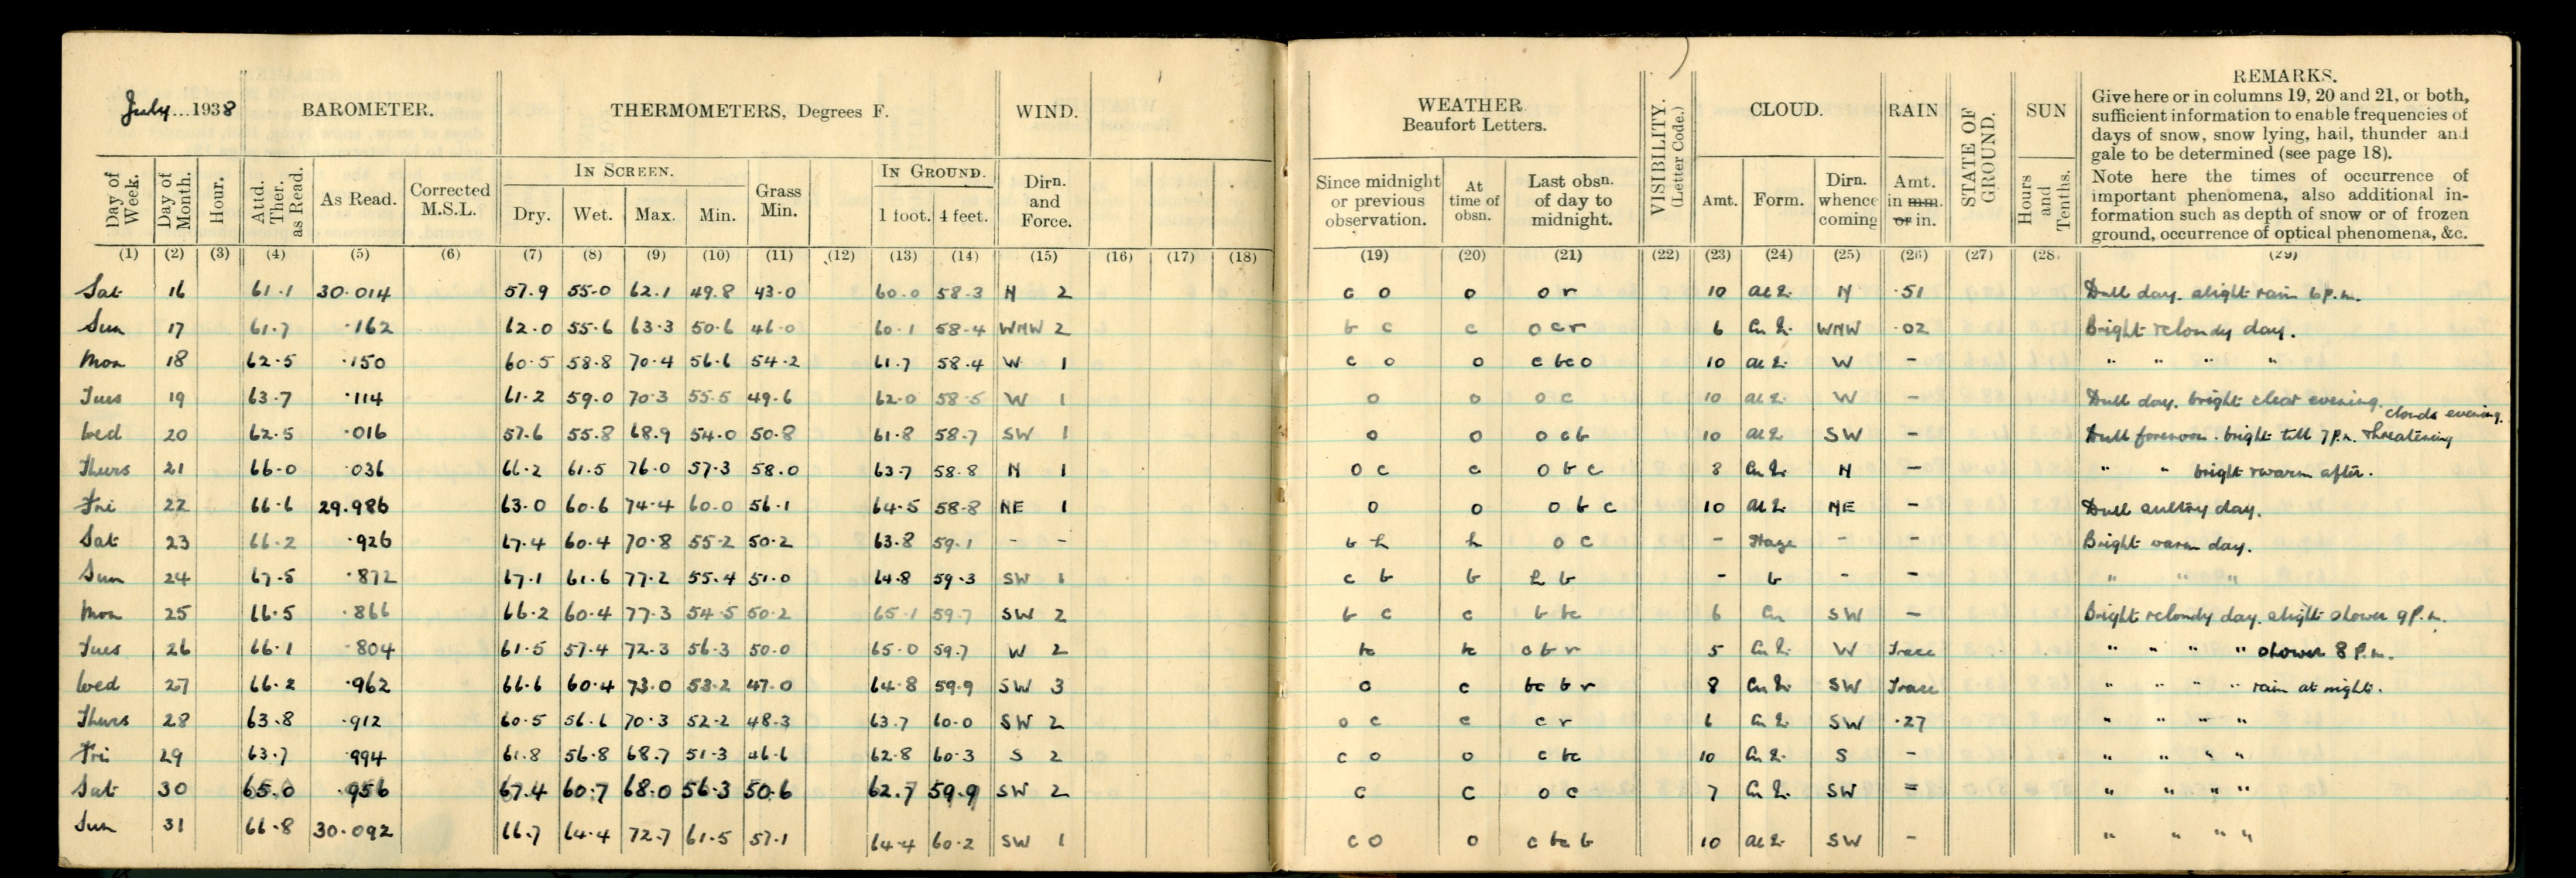 July 1938 BAROMETER. THERMOMETERS, Degrees F. WIND. WEATHER Beaufort Letters. VISIBILITY. (Letter Code.) CLOUD. RAIN STATE OF GROUND. SUN REMARKS.
Give here or in columns 19, 20 and 21, or both,
sufficient information to enable frequencies of
days of snow, snow lying, hail, thunder and
gale to be determined (see page 18).
Note here the times of occurrence of
important phenomena, also additional in-
formation such as depth of snow or of frozen
ground, occurrence of optical phenomena, &c.
IN SCREEN. IN GROUND.
Day of Week. Day of Month. Hour. Attd. Ther. as Read. As Read. Corrected M.S.L. Dry. Wet. Max. Min. Grass Min. 1 foot. 4 feet. Dirn. and Force. Since midnight or previous observation. At time of obsn. Last obsn. of day to midnight. Amt. Form. Dirn. whence coming Amt. in mm. or in. Hours and Tenths.
(1) (2) (3) (4) (5) (6) (7) (8) (9) (10) (11) (12) (13) (14) (15) (16) (17) (18) (19) (20) (21) (22) (23) (24) (25) (26) (27) (28) (29)
Sat 16 61.1 30.014 57.9 55.0 62.1 49.8 43.0 60.0 58.3 N 2 c o o o r 10 N .51 Dull day. slight rain 6 p.m.
Sun 17 61.7 .162 62.0 55.6 63.3 50.6 46.0 60.1 58.4 WNW 2 b c c o c r 6 WNW .02 Bright & cloudy day.
Mon 18 62.5 .150 60.5 58.8 70.4 56.6 54.2 61.7 58.4 W 1 c o o c bc o 10 W - " " " "
Tues 19 63.7 .114 61.2 59.0 70.3 55.5 49.6 62.0 58.5 W 1 o o o c 10 W - Dull day. bright clear evening.
Wed 20 62.5 .016 57.6 55.8 68.9 54.0 50.8 61.8 58.7 SW 1 o o o c b 10 SW - Dull forenoon. bright till 7 p.m. threatening clouds evening.
Thurs 21 66.0 .036 66.2 61.5 76.0 57.3 58.0 63.7 58.8 N 1 o c c o b c 8 N - " " bright & warm after.
Fri 22 66.6 29.986 63.0 60.6 74.4 60.0 56.1 64.5 58.8 NE 1 o o o b c 10 NE - Dull sultry day.
Sat 23 66.2 .926 67.4 60.4 70.8 55.2 50.2 63.8 59.1 - - b h h o c - Haze - - Bright warm day.
Sun 24 67.5 .872 67.1 61.6 77.2 55.4 51.0 64.8 59.3 SW 1 c b b h b - b - - " " "
Mon 25 66.5 .866 66.2 60.4 77.3 54.5 50.2 65.1 59.7 SW 2 b c c b bc 6 Cu SW - Bright & cloudy day. slight shower 9 p.m.
Tues 26 66.1 .804 61.5 57.4 72.3 56.3 50.0 65.0 59.7 W 2 bc bc c b r 5 W Trace " " " " shower 8 p.m.
Wed 27 66.2 .962 66.6 60.4 73.0 53.2 47.0 64.8 59.9 SW 3 o c bc b r 8 SW Trace " " " " rain at night.
Thurs 28 63.8 .912 60.5 56.6 70.3 52.2 48.3 63.7 60.0 SW 2 o c c c r 6 SW .27 " " " "
Fri 29 63.7 .994 61.8 56.8 68.7 51.3 46.6 62.8 60.3 S 2 c o o c bc 10 S - " " " "
Sat 30 65.0 .956 67.4 60.7 68.0 56.3 50.6 62.7 59.9 SW 2 c c o c 7 SW = " " " "
Sun 31 66.8 30.092 66.7 64.4 72.7 61.5 57.1 64.4 60.2 SW 1 c o o c bc b 10 SW - " " " "